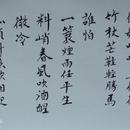 竹杖芒鞋輕勝馬
誰怕
一蓑煙雨任平生
料峭春風吹酒醒
微冷
山頭斜照卻相迎